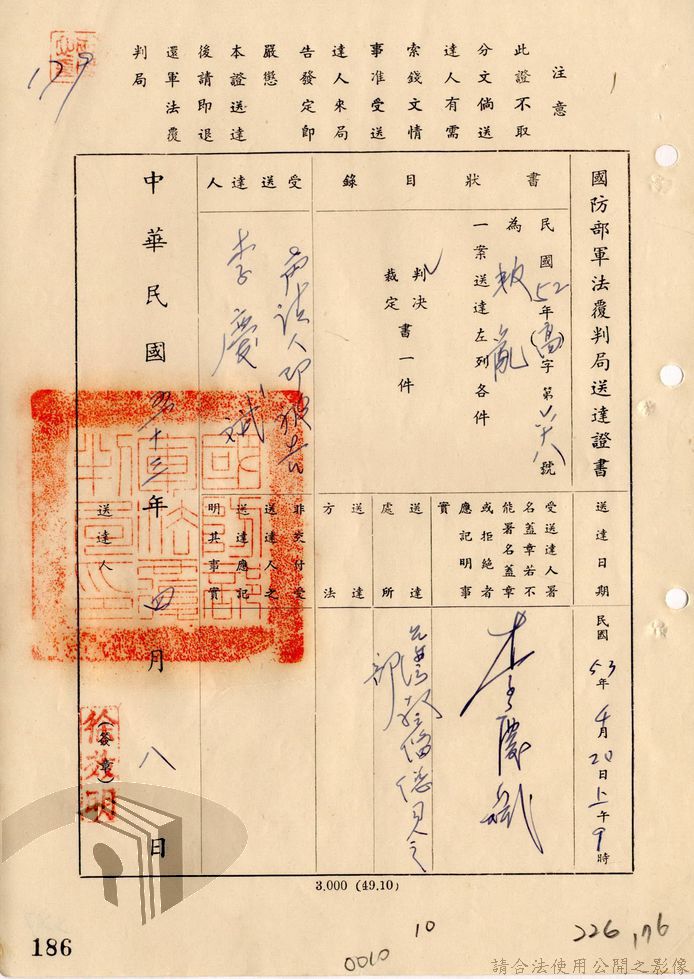 注意
此證不取
分文倘送
達人有需
索錢文情
事准受送
達人來局
告發定即
嚴懲
本證送達
後請即退
還軍法覆
判局
179
國防部軍法覆判局送達證書
書狀目錄
民國52年(高)字第 號
為叛亂
一案送達左列各件
判決書一件
裁定
受送達人
聲請人即被告
李慶斌
送達日期
民國53年4月20日上午9時
受送達人署
名蓋章若不
能署名蓋章
或拒絕者
應記明事
實
李慶斌
送達處所
部
送達方法
非交付受
送達人之
送達應記
明其事實
中華民國五十三年四月八日
國防部軍法覆判局印
送達人
(簽章)
徐效明
3.000 (49.10)
186
0010
10
226
176
請合法使用公開之影像